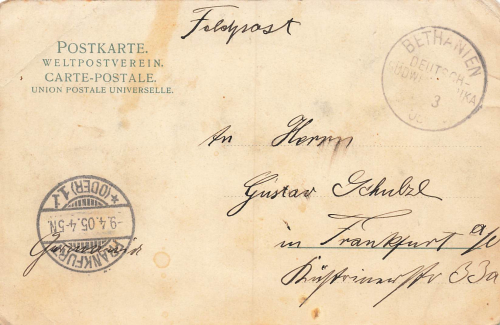 Feldpost
POSTKARTE.
WELTPOSTVEREIN.
CARTE-POSTALE.
UNION POSTALE UNIVERSELLE.
BETHANIEN
DEUTSCH-
SÜDWESTAFRIKA
3
An Herrn
Gustav Schulze
in Frankfurt a/O
Küstrinerstr 33a
FRANKFURT
(ODER) 1.
* 1
-9.4.05.4-5N.
Germania